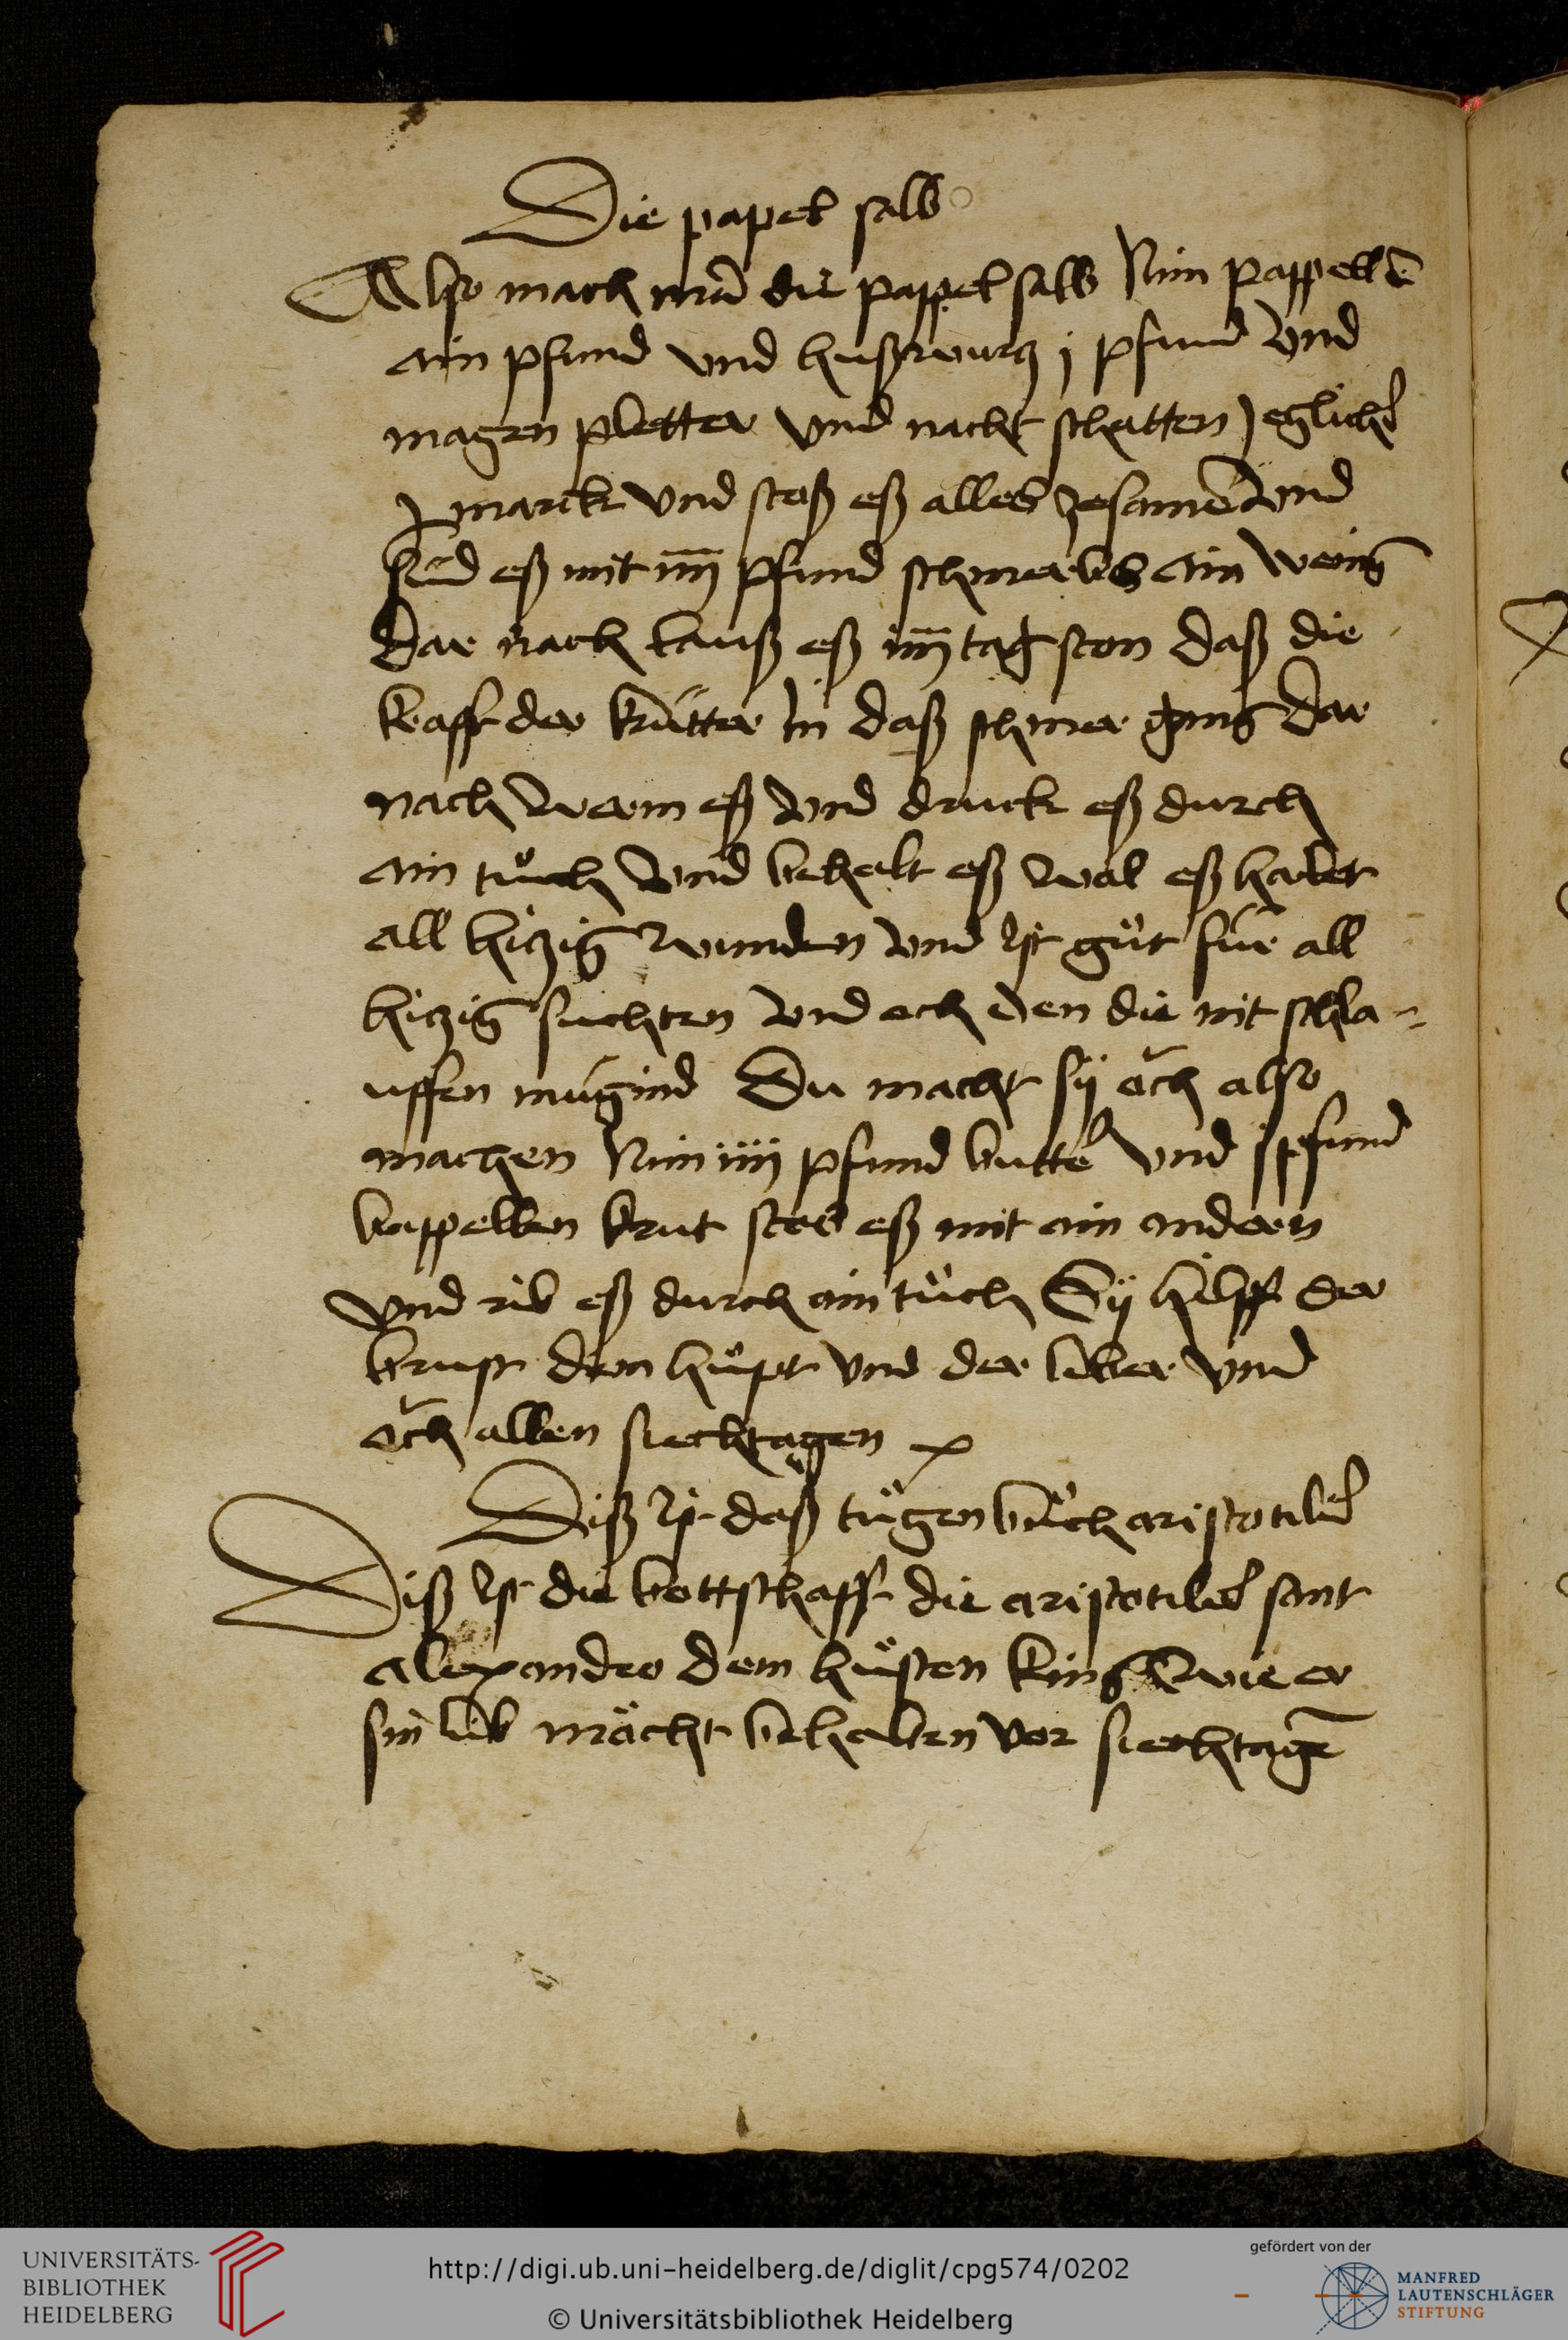 Die papel salb
Also mach man̄ die pappel salb Nim pappellē
ain pfund vnd hußwurtz j pfund vnd
magen pletter vnd nacht schatten jeglichs
j marck vnd stoß eß alles zesamē vnd
süd eß mit iiij pfund schmerbs ain wenig
dar nach lauß eß iiij tag ston daß die
krafft der krütter In daß schmer gang dar
nach werm eß vnd druck eß durch
ain tůch vnd behalt eß wol eß hailet
all hiczig wunden vnd ist gůt für all
hiczig suchten vnd och den die nit schla-
uffen mügind Du macht sÿ och also
machen Nim iiij pfund butter vnd j pfund
bappellen krut stos eß mit ain andern
vnd rib eß durch ain tůch Sÿ hilfft der
brust dem hǒpt vnd der leber vnd
och allen siechtagen
Diß ist daß tugen bůch aristotiles
Diß ist die bottschafft die aristotiles sant
alexandro dem hǒsten king wie er
sin lib mächt behalten vor siechtagē
UNIVERSITÄTS-
BIBLIOTHEK
HEIDELBERG
http://digi.ub.uni-heidelberg.de/diglit/cpg574/0202
© Universitätsbibliothek Heidelberg
gefördert von der
MANFRED
LAUTENSCHLÄGER
STIFTUNG